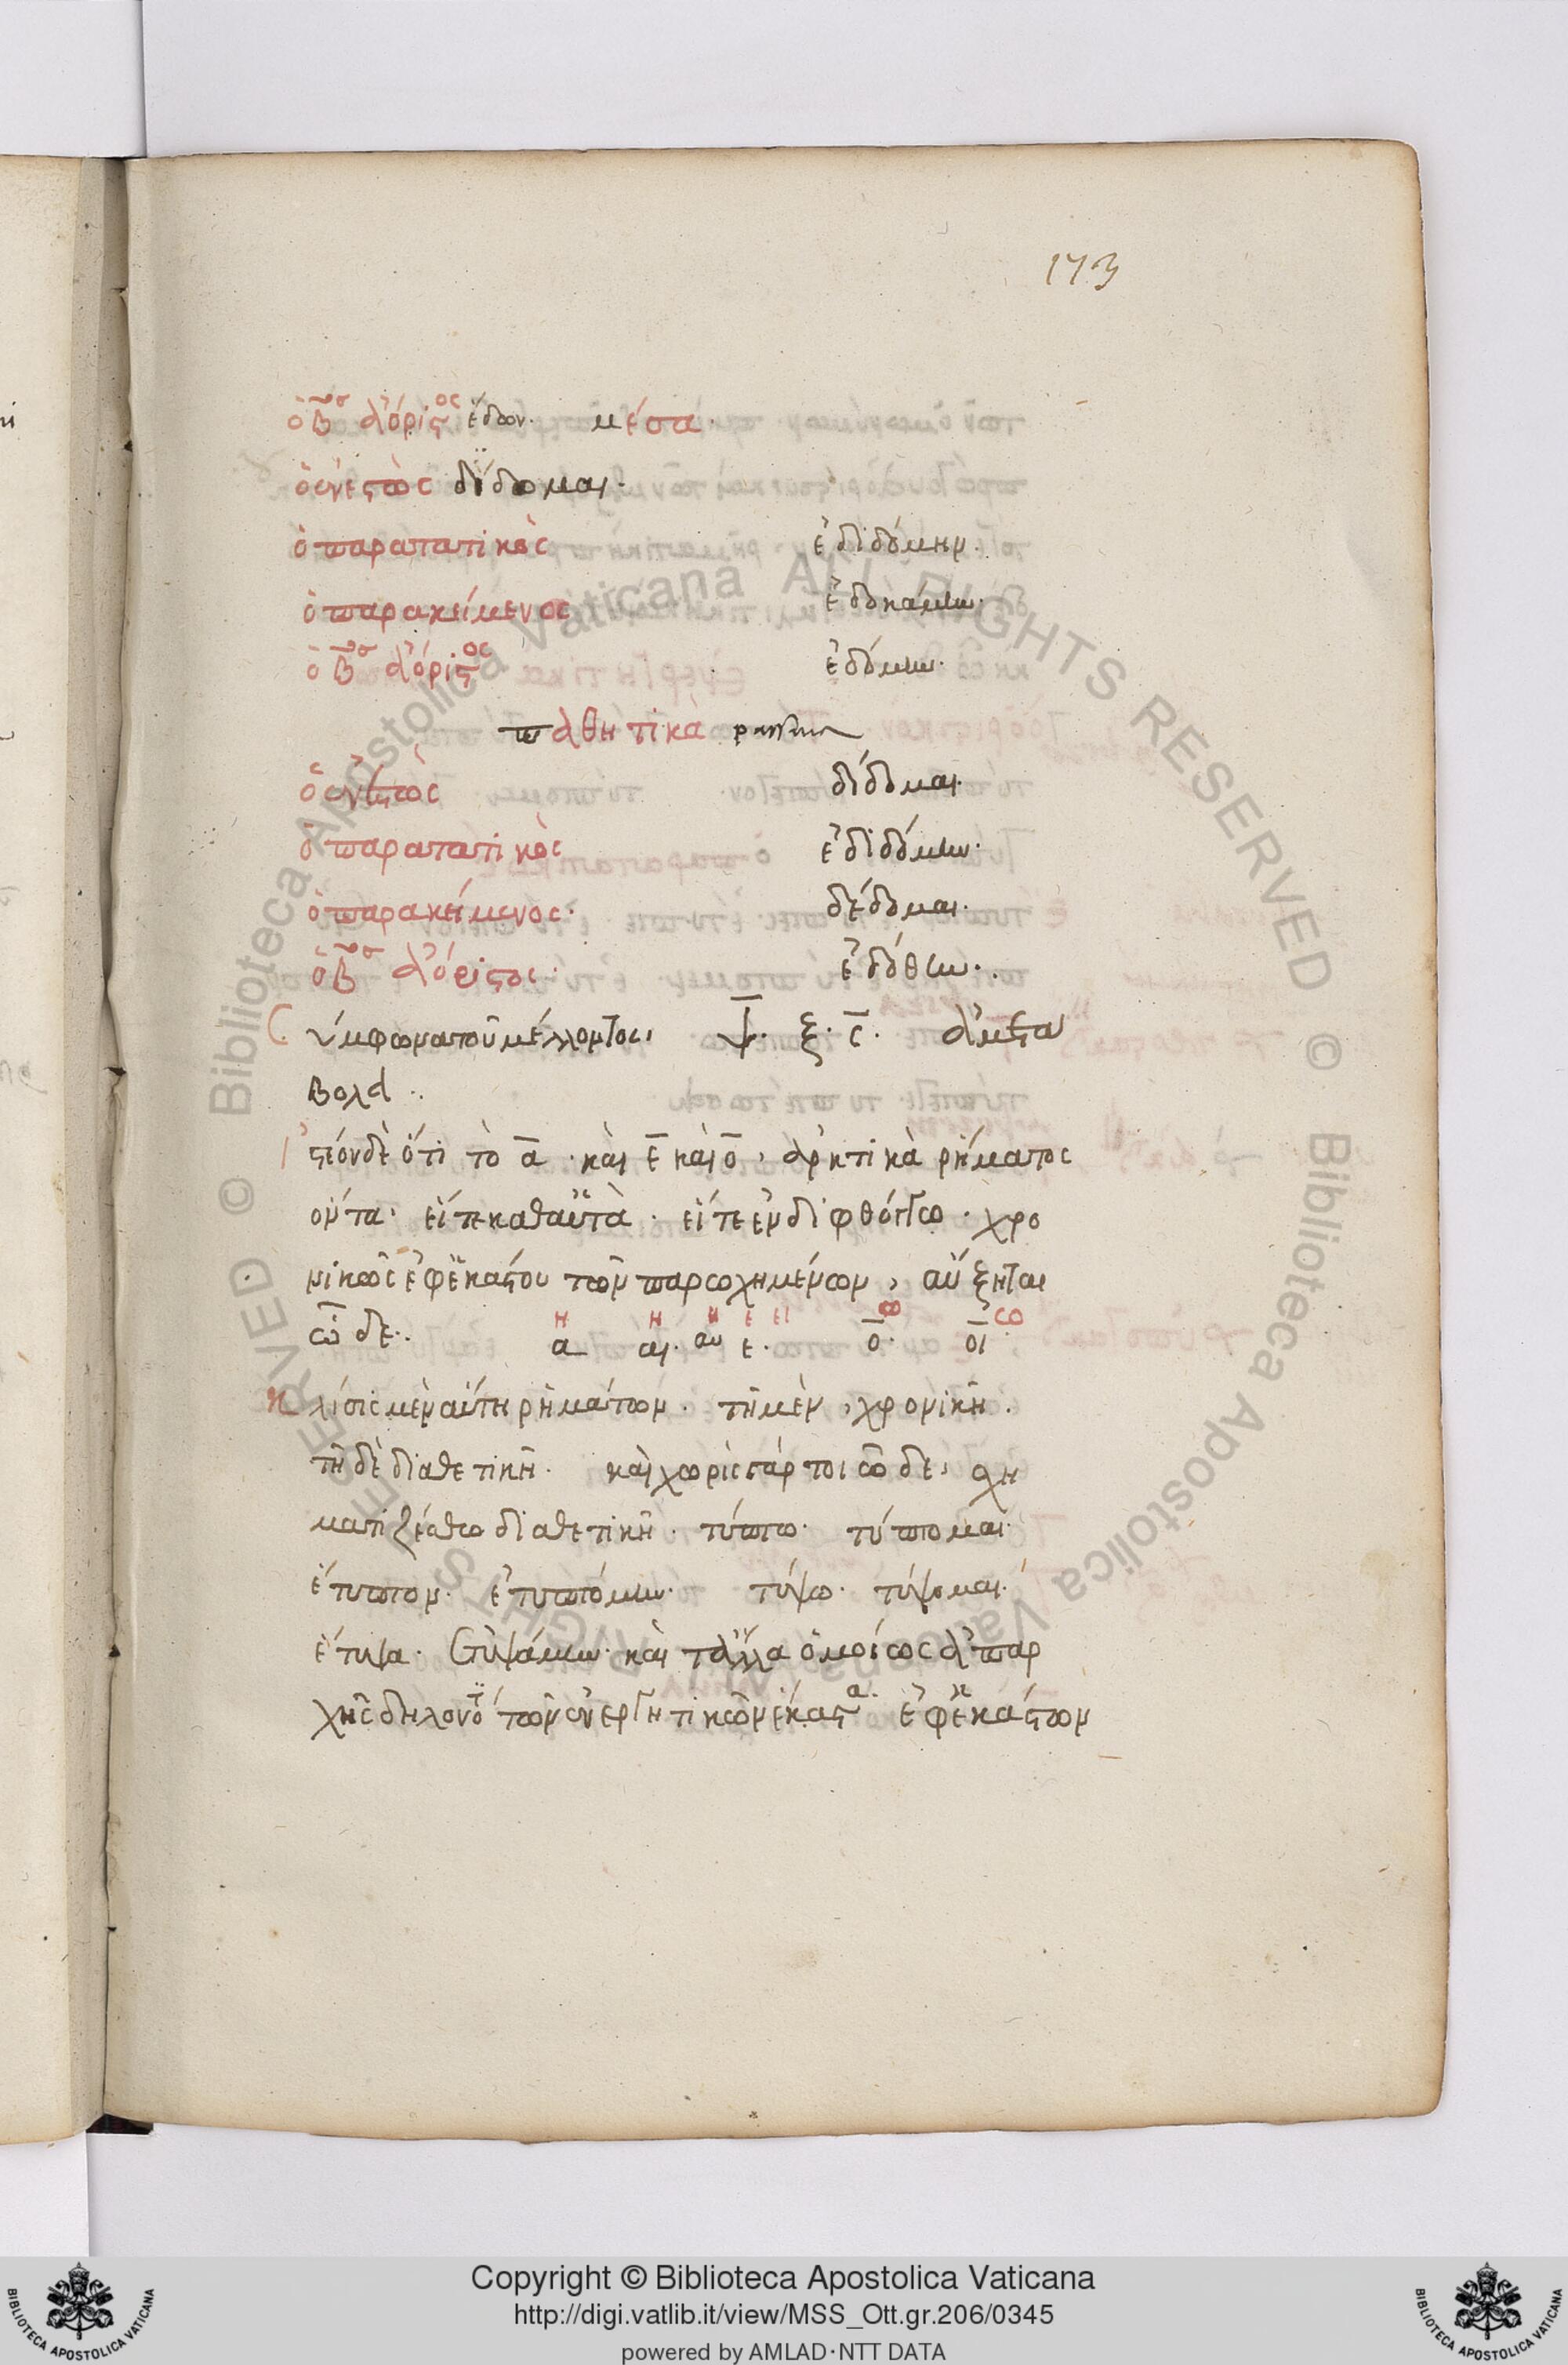 173
ὁ β^ος ἀόριστος ἔδων. μέσα.
ὁ ἐνεστὼς δίδομαι.
ὁ παρατατικὸς ἐδιδόμην.
ὁ παρακείμενος ἐδοκάμην.
ὁ β^ος ἀόριστος ἐδόμην.
παθητικὰ passiua
ὁ ἐνεστὼς δίδομαι.
ὁ παρατατικὸς ἐδιδόμην.
ὁ παρακείμενος. δέδομαι.
ὁ β^ος ἀόριστος. ἐδόθην.
Σύμφωνα τοῦ μέλλοντος, ψ. ξ. σ. ἀμετα
βολα..
Ἰστέον δὲ ὅτι τὸ α. καὶ ε καὶ ο, ἀρκτικὰ ῥήματος
ὄντα. εἴτε καθαὑτὰ. εἴτε ἐν διφθόγγω. χρο
νικῶς ἐφ' ἑκάστου τῶν παρωχημένων, αὔξηται
ὧδε.. η η η ε ει ω ω
α αι. αυ ε. ο. οι
Κλίσις μὲν αὕτη ῥημάτων. τῆ μὲν, χρονικῆ.
τῆ δὲ διαθετικῆ. καὶ χωρὶς γάρ τοι ὧδε, σχη
ματιζέσθω διαθετικῆ. τύπτω. τύπτομαι.
ἔτυπτον. ἐτυπτόμην. τύψω. τύψομαι.
ἔτυψα. ἐτυψάμην. καὶ τἄλλα ὁμοίως ἀπαρ
χῆς δηλονότι τῶν ἐνεργητικῶν ἑκάστα. ἐφ' ἑκάστων
Copyright © Biblioteca Apostolica Vaticana
http://digi.vatlib.it/view/MSS_Ott.gr.206/0345
powered by AMLAD·NTT DATA
BIBLIOTECA APOSTOLICA VATICANA
BIBLIOTECA APOSTOLICA VATICANA
© Biblioteca Apostolica Vaticana ALL RIGHTS RESERVED © Biblioteca Apostolica Vaticana ALL RIGHTS RESERVED